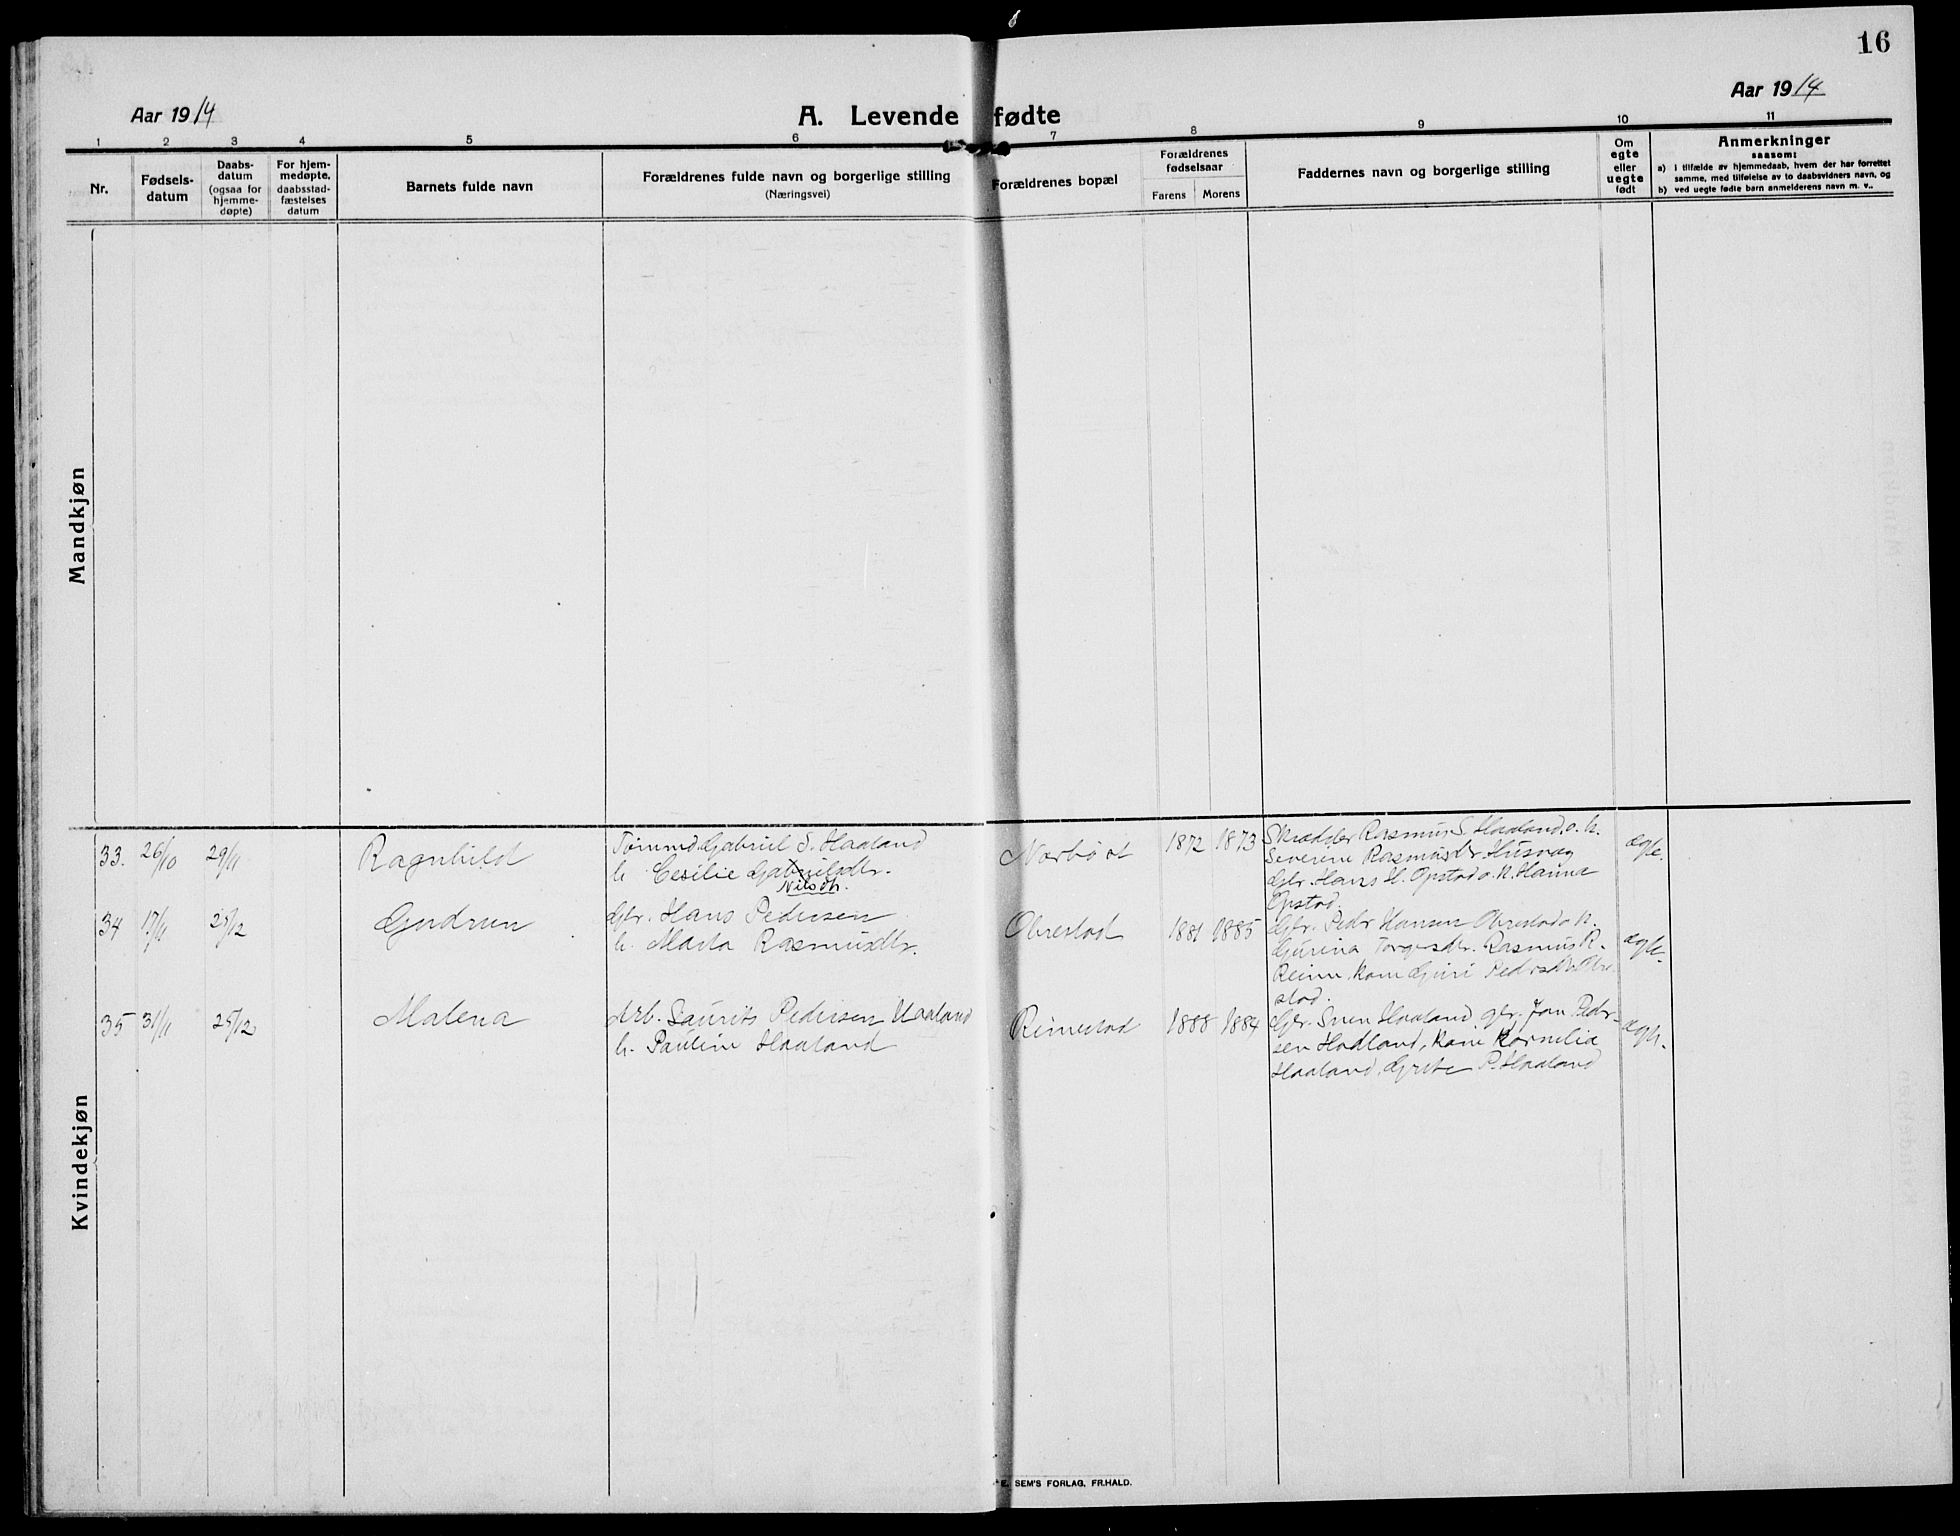 16
Aar 1914
A. Levende fødte
Aar 1914
1 2 3 4 5 6 7 8 9 10 11
Nr.
Fødsels-
datum
Daabs-
datum
(ogsaa for
hjemme-
døpte)
For hjem-
medøpte,
daabsstad-
fæstelses
datum
Barnets fulde navn
Forældrenes fulde navn og borgerlige stilling
(Næringsvei)
Forældrenes bopæl
Forældrenes
fødselsaar
Farens Morens
Faddernes navn og borgerlige stilling
Om
egte
eller
uegte
født
Anmerkninger
saasom:
a) i tilfælde av hjemmedaab, hvem der har forrettet
samme, med tilføielse av to daabsvidners navn, og
b) ved uegte fødte barn anmelderens navn m. v..
Mandkjøn
Kvindekjøn
33. 26/10 29/11
Ragnhild
Tømmd. Gabriel S. Haaland
h. Cecilie Gabrielsdtr.
Nilsdtr.
Nærbø st
1872 1873
Skrædder Rasmus S. Haaland o. h.
Severine Rasmusdtr Husvæg
Gbr. Hans H. Opstad o. h. Hanna
Opstad.
ægte.
34 17/11 25/12
Gudrun
Gbr. Hans Pedersen
h. Marta Rasmusdtr.
Obrestad
1881 1885
Gbr. Peder Hansen Obrestad o h.
Gurina Torgersdtr. Rasmus R.
Reime, kone Guri Pedersdtr Obre-
stad.
ægte.
35 31/11 25/12
Malena
Arb. Laurits Pedersen Haaland
h. Pauline Haaland
Rimestad
1888 1884
Gbr. Sven Haaland, gbr. Jon Peder-
sen Hadland, kone Kornelia
Haaland, Grete P. Haaland
ægte.
E. SEM'S FORLAG, FR.HALD.